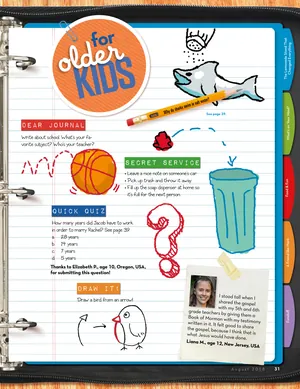 for
older
KIDS
Why do sharks swim in salt water?
See page 39.
DEAR JOURNAL
Write about school. What's your fa-
vorite subject? Who's your teacher?
SECRET SERVICE
• Leave a nice note on someone's car.
• Pick up trash and throw it away.
• Fill up the soap dispenser at home so
it's full for the next person.
QUICK QUIZ
How many years did Jacob have to work
in order to marry Rachel? See page 39.
a. 28 years
b. 14 years
c. 7 years
d. 5 years
Thanks to Elizabeth P., age 10, Oregon, USA,
for submitting this question!
DRAW IT!
Draw a bird from an arrow!
I stood tall when I
shared the gospel
with my 5th and 6th
grade teachers by giving them a
Book of Mormon with my testimony
written in it. It felt good to share
the gospel, because I think that is
what Jesus would have done.
Liana M., age 12, New Jersey, USA
The Lemonade Stand That
Changed Everything
August 2015 31